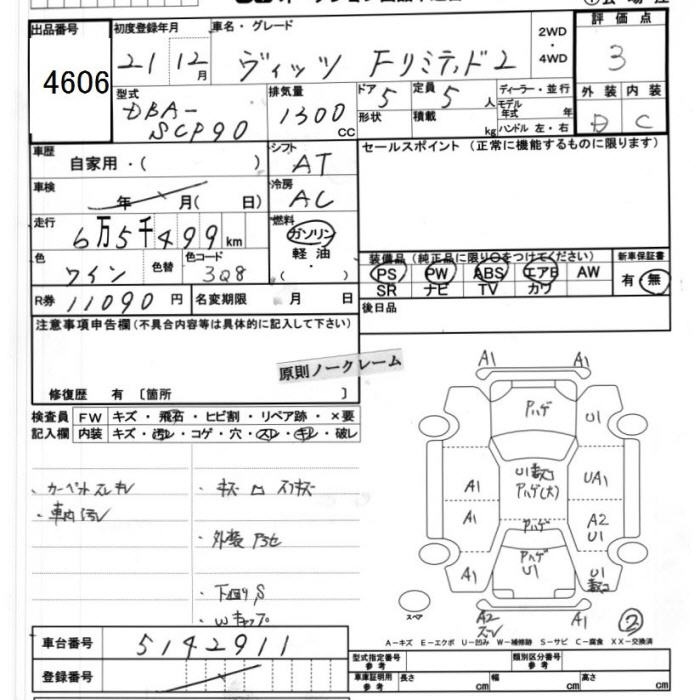 出品番号 初度登録年月 車名・グレード 2WD ・ 4WD 評価点
4606 21 12月 ヴィッツ Fリミテッド2 3
型式 DBA-SCP90 排気量 1300 CC ドア 5 定員 5 人 ディーラー・並行 外装 内装
形状 積載 kg モデル年式 年 ハンドル 左・右 D C
車歴 自家用・( ) シフト AT セールスポイント(正常に機能するものに限ります)
車検 年 月( 日) 冷房 AC
走行 6万5千499km 燃料 ガソリン 軽油 ・( )
色 ワイン 色替 色コード 3Q8 装備品(純正品に限り○をつけてください) 新車保証書
PS PW ABS エアB AW 有・無
SR ナビ TV カワ
R券 11090円 名変期限 月 日 後日品
注意事項申告欄(不具合内容等は具体的に記入して下さい)
原則ノークレーム
修復歴 有〔箇所 〕
検査員 FW キズ・飛石・ヒビ割・リペア跡・×要
記入欄 内装 キズ・汚レ・コゲ・穴・スレ・キレ・破レ
・カーペットスレキレ ・キズ凹スリキズ
・車内汚レ
・外装
・下廻りS
・Wキャップ
A1 A1
Aハゲ U1
U1 Aハゲ(大)
A1 UA1
A1 Aハゲ A2 U1
A1 Aハゲ U1 U1
スペア A2 A1 ②
A-キズ E-エクボ U-凹み W-補修跡 S-サビ C-腐食 XX-交換済
車台番号 5142911 型式指定番号 参考 類別区分番号 参考
登録番号 車庫証明用 参考 長さ cm 幅 cm 高さ cm